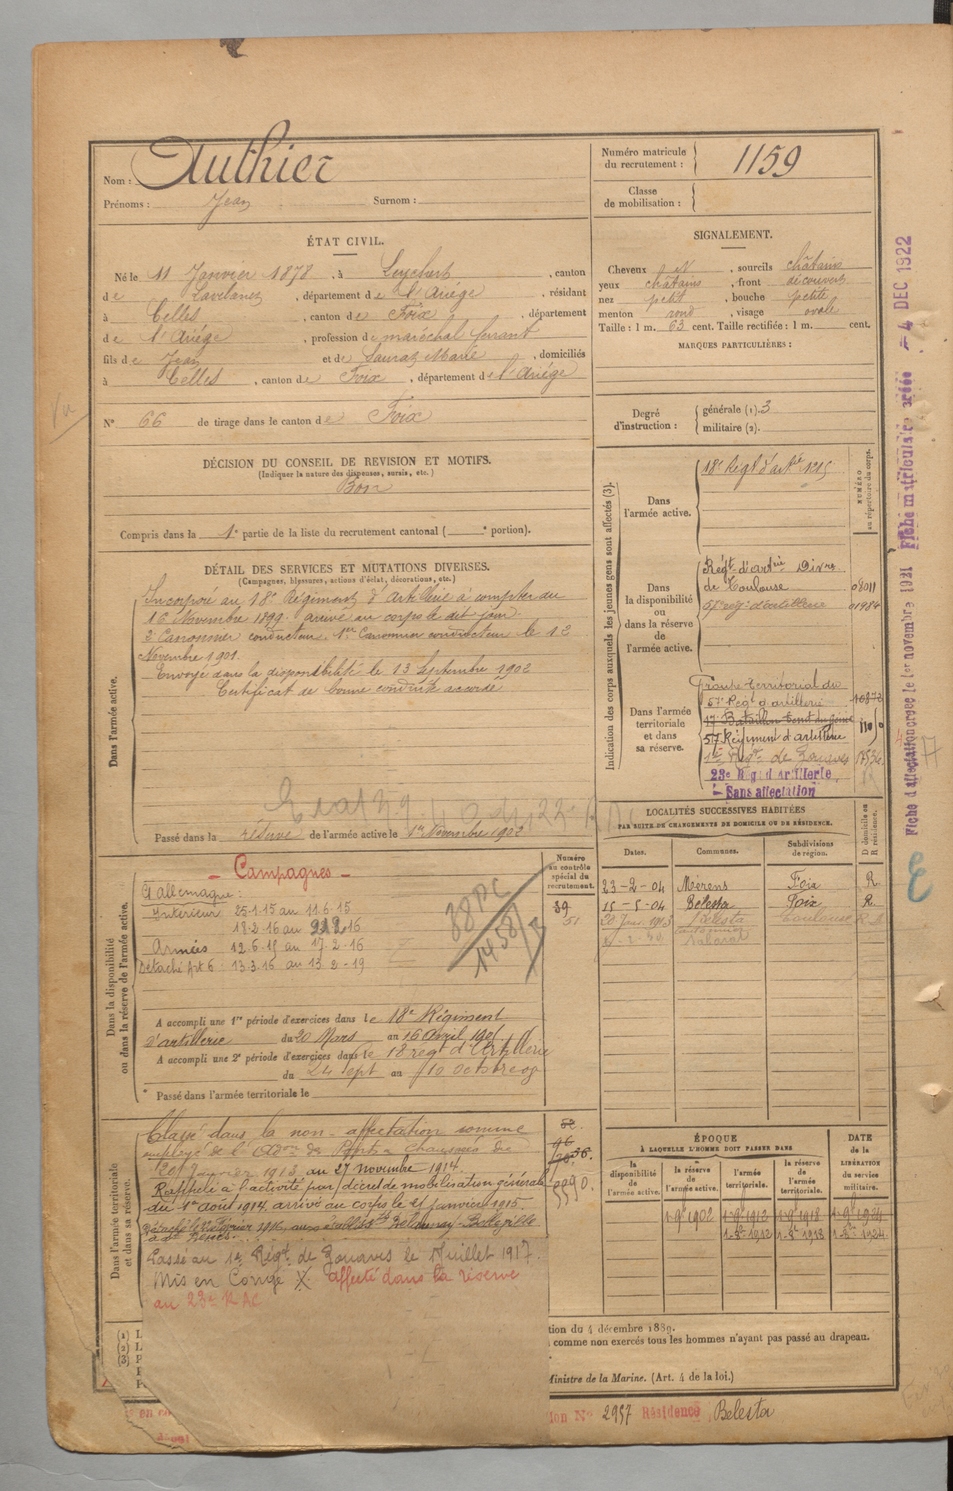 Nom : Authier
Prénoms : Jean Surnom :
Numéro matricule du recrutement : 1159
Classe de mobilisation :
ÉTAT CIVIL.
Né le 11 Janvier 1878, à Leychert, canton
de Lavelanet, département de l'Ariége, résidant
à Celles, canton de Foix, département
de l'Ariége, profession de maréchal ferrant
fils de Jean et de Sauraz Marie, domiciliés
à Celles, canton de Foix, département de l'Ariége
N° 66 de tirage dans le canton de Foix
SIGNALEMENT.
Cheveux , sourcils châtains
yeux châtains, front découvert
nez petit, bouche petite
menton rond, visage ovale
Taille : 1 m. 63 cent. Taille rectifiée : 1 m. cent.
MARQUES PARTICULIÈRES :
Degré d'instruction : générale (1). 3
militaire (2).
DÉCISION DU CONSEIL DE REVISION ET MOTIFS.
(Indiquer la nature des dispenses, sursis, etc.)
Bon
Compris dans la 1e partie de la liste du recrutement cantonal ( e portion).
DÉTAIL DES SERVICES ET MUTATIONS DIVERSES.
(Campagnes, blessures, actions d'éclat, décorations, etc.)
Dans l'armée active.
Incorporé au 18e Régiment d'Artillerie à compter du
16 Novembre 1899. arrivé au corps le dit jour
2e Canonnier conducteur, 1er Canonnier conducteur le 12
Novembre 1901.
Envoyé dans la disponibilité le 13 Septembre 1902
Certificat de bonne conduite accordé
Passé dans la réserve de l'armée active le 1er Novembre 1902
Indication des corps auxquels les jeunes gens sont affectés (3).
NUMÉRO au répertoire du corps.
Dans l'armée active.
18e Régt d'artie 1215
Dans la disponibilité ou dans la réserve de l'armée active.
Régt d'artie Divre
de Toulouse 08011
57e rég. d'artillerie 01984
Dans l'armée territoriale et dans sa réserve.
Groupe territorial du
57e Régt d'artillerie
17e Bataillon territ du génie
57 Régiment d'artillerie
1er Régt de Zouaves
23e Rég d'Artillerie
Sans affectation
Fiche d'affectation créée le 1er novembre 1921 Fiche matriculaire créée - 4 DEC 1922
LOCALITÉS SUCCESSIVES HABITÉES
PAR SUITE DE CHANGEMENTS DE DOMICILE OU DE RÉSIDENCE.
Dates. Communes. Subdivisions de région. D domicile ou R résidence.
23-2-04 Mérens Foix R.
15-5-04 Bélesta Foix R.
20 Janv 1913 Bélesta Toulouse
Dans la disponibilité ou dans la réserve de l'armée active.
Numéro au contrôle spécial du recrutement.
39
- Campagnes -
Ct Allemagne :
Intérieur 25.1.15 au 11.6.15
18.2.16 au
Armées 12.6.15 au 17.2.16
Détaché Art 6 : 13.3.16 au 13.2-19
38 PC
1458/3
A accompli une 1re période d'exercices dans le 18e Régiment
d'artillerie du 20 Mars au 16 Avril
A accompli une 2e période d'exercices dans le 18 rég d'Artillerie
du 24 Sept au 10 octobre 09
Passé dans l'armée territoriale le
Dans l'armée territoriale et dans sa réserve.
Classé dans la non-affectation comme
employé de l'Adon des Ponts & Chaussées du
Janvier 1913 au 27 novembre 1914.
Rappelé à l'activité par décret de mobilisation générale
du 1er août 1914, arrivé au corps le 21 Janvier 1915.
Passé au 1er Régt de Zouaves le Juillet 1917.
Mis en Congé X. affecté dans la réserve
au 23e RAC
5590.
ÉPOQUE
À LAQUELLE L'HOMME DOIT PASSER DANS
DATE de la LIBÉRATION du service militaire.
la disponibilité de l'armée active. la réserve de l'armée active. l'armée territoriale. la réserve de l'armée territoriale.
1-9-1902 1-9-1912 1-9-1918 1-9-1924
1-8-1912 1-8-1918 1-8-1924
tion du 4 décembre 1889.
comme non exercés tous les hommes n'ayant pas passé au drapeau.
Ministre de la Marine. (Art. 4 de la loi.)
(1) L
(2) L
(3)
ion N° 2957 Résidence Belesta